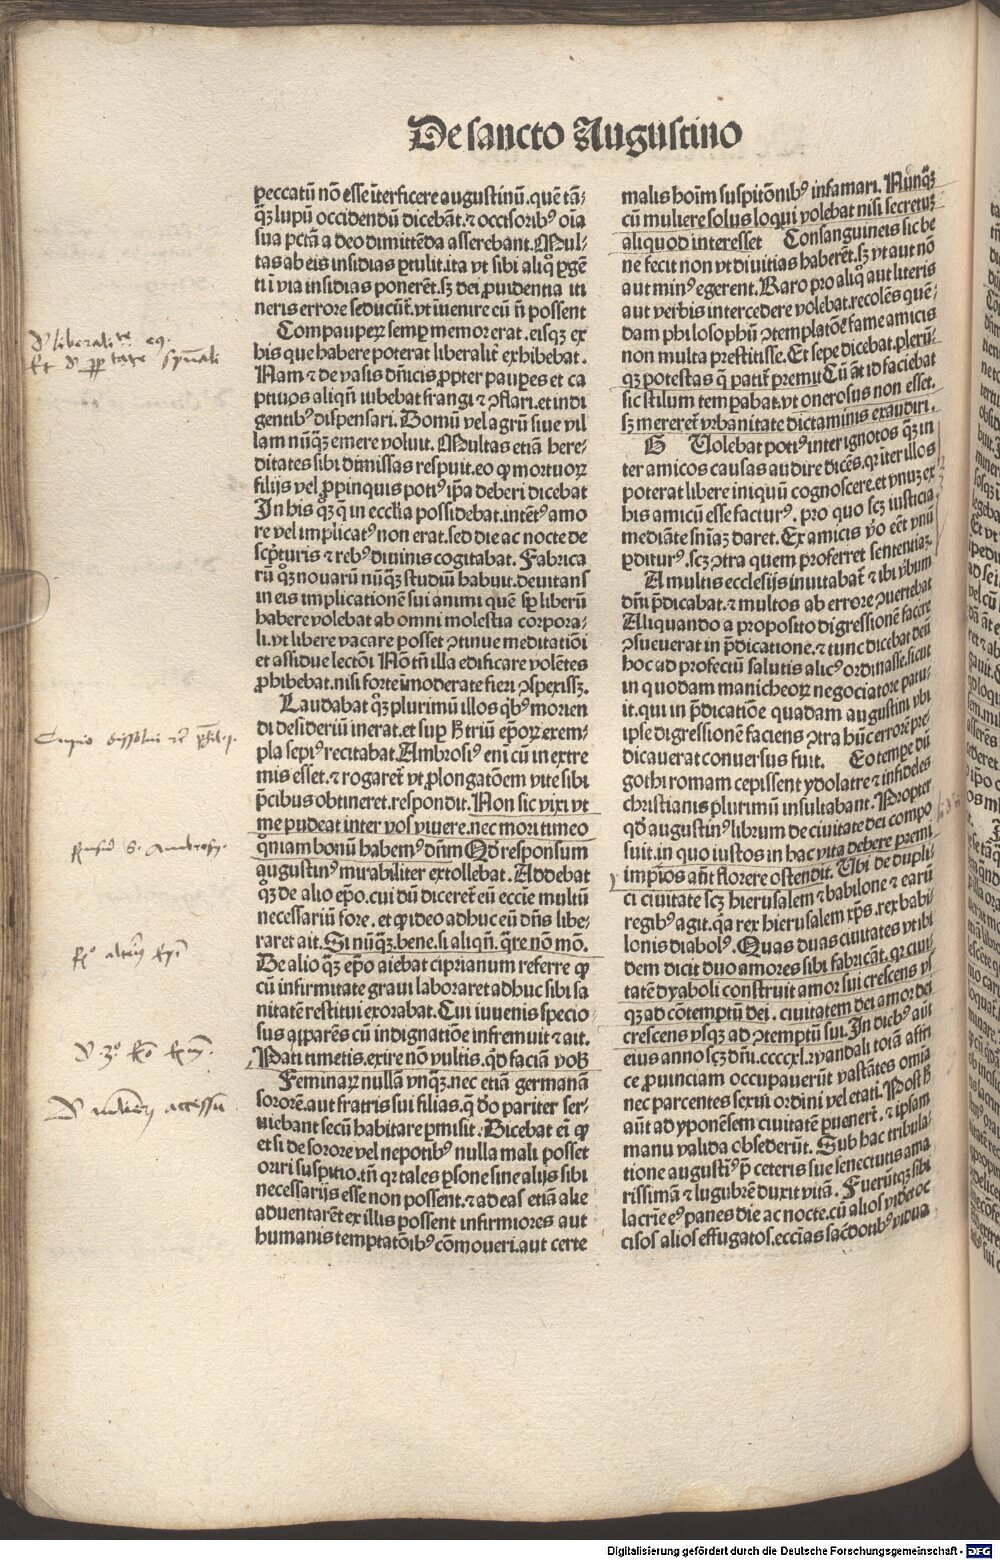 De sancto Augustino
peccatū nō esse īterficere augustinū. quē tā⸗
q̄ꝫ lupū occidendū dicebāt. ⁊ occisoribꝰ oīa
sua pctā a deo dimittēda asserebant. Mul⸗
tas ab eis insidias ꝑtulit. ita vt sibi aliqn̄ ꝑgē
ti ī via insidias ponerēt. sꝫ dei ꝓuidentia iti
neris errore seducūt᷑. vt īuenire eū nō possent
Compauꝑeꝝ semꝑ memor erat. eisqꝫ ex
his que habere poterat liberalit᷑ exhibebat.
Nam ⁊ de vasis dn̄icis ꝓpter pauꝑes et ca
ptiuos aliqn̄ iubebat frangi ⁊ ꝯflari. et indi
gentibꝰ dispensari. Domū vel agrū siue vil
lam nūq̄ꝫ emere voluit. Multas etiā here⸗
ditates sibi dimissas respuit. eo ꝙ mortuoꝝ
filijs vel ꝓpinquis potiꝰ ip̄a deberi dicebat
In his q̊ꝫ q̄ in eccl̄ia possidebat. intētꝰ amo
re vel implicatꝰ non erat. sed die ac nocte de
scpturis ⁊ rebꝰ diuinis cogitabat. Fabrica
rū q̊ꝫ nouarū nūq̄ꝫ studiū habuit. deuitans
in eis implicationē sui animi quē sꝑ liberū
habere volebat ab omni molestia corpora⸗
li. vt libere vacare posset ꝯtinue meditatiōi
et assidue lectōi Nō tn̄ illa edificare volētes
ꝓhibebat. nisi forte īmoderate fieri ꝯspexissꝫ.
Laudabat q̊ꝫ plurimū illos qͥbꝰ morien
di desideriū inerat. et suꝑ h̄ triū ep̄oꝝ exem⸗
pla sepiꝰ recitabat. Ambrosiꝰ eni cū in extre
mis esset. ⁊ rogaret᷑ vt ꝓlongatōem vite sibi
p̄cibus obtineret. respondit. Non sic vixi vt
me pudeat inter vos viuere. nec mori timeo
qm̄niam bonū habemꝰ dn̄m Qd̓ responsum
augustinꝰ mirabiliter extollebat. Addebat
q̊ꝫ de alio ep̄o. cui dū dicerēt eū eccīe multū
necessariū fore. et ꝙ ideo adhuc eū dn̄s libe⸗
raret ait. Si nūq̄ꝫ. bene. si aliqn̄. q̄re nō mō.
De alio q̊ꝫ ep̄o aiebat ciprianum referre ꝙ
cū infirmitate graui laboraret adhuc sibi sa
nitatē restitui exorabat. Cui iuuenis specio⸗
sus apparēs cū indignatiōe infremuit ⁊ ait.
Pati timetis. exire nō vultis. qͥd faciā vob̄
Feminaꝝ nullā vnq̄ꝫ. nec etiā germanā
sororē. aut fratris sui filias. q̄ dō pariter ser⸗
uiebant secū habitare ꝑmisit. Dicebat ei ꝙ
et si de sorore vel nepotibꝰ nulla mali posset
oriri suspitio. tn̄ qꝛ tales ꝑsone sine alijs sibi
necessarijs esse non possent. ⁊ ad eas etiā alie
aduentarēt ex illis possent infirmiores aut
humanis temptatōibꝰ cōmoueri. aut certe
malis hoīm suspitōnibꝰ infamari. Nunq̄ꝫ
cū muliere solus loqui volebat nisi secretuꝫ
aliquod interesset Consanguineis sic be
ne fecit non vt diuitias haberēt. sꝫ vt aut nō
aut minꝰ egerent. Raro pro aliq̊ aut literis
aut verbis intercedere volebat. recolēs quē⸗
dam philosophū ꝯtemplatōe fame amicis
non multa prestitisse. Et sepe dicebat. plerū⸗
qꝫ potestas q̄ patit᷑ premit Cū āt id faciebat
sic stilum temꝑabat. vt onerosus non esset.
sꝫ mereret᷑ vrbanitate dictaminis exaudiri.
G Volebat potiꝰ inter ignotos q̄ꝫ in
ter amicos causas audire dicēs. qꝛ īter illos
poterat libere iniquū cognoscere. et vnuꝫ ex
his amicū esse facturꝰ. pro quo scꝫ iusticia
mediāte sniāꝫ daret. Ex amicis ꝟo eēt vnū
ꝑditurꝰ. scꝫ ꝯtra quem proferret sententiaꝫ.
A multis ecclesijs inuitabat᷑ ⁊ ibi v̓bum
dn̄i p̄dicabat. ⁊ multos ab errore ꝯuertebat
Aliquando a proposito digressionē facere
ꝯsueuerat in p̄dicatione. ⁊ tunc dicebat deū
hoc ad profectū salutis alicꝰ ordinasse. sicut
in quodam manicheoꝝ negociatore patu⸗
it. qui in p̄dicatiōe quadam augustini vbi
ipse digressionē faciens ꝯtra hūc errorē pre⸗
dicauerat conuersus fuit. Eo temꝑe dū
gothi romam cepissent ydolatre ⁊ infideles
christianis plurimū insultabant. Propter
qd̓ augustinꝰ librum de ciuitate dei compo
suit. in quo iustos in hac vita debere premi
impios aūt florere ostendit. Ubi de dupli⸗
ci ciuitate scꝫ hierusalem ⁊ babilone ⁊ earū
regibꝰ agit. qꝛ rex hierusalem xp̄s. rex babi⸗
lonis diabolꝰ. Quas duas ciuitates vt ibi
dem dicit duo amores sibi fabricāt. qꝛ ciui⸗
tatē dyaboli construit amor sui crescens vs
qꝫ ad cōtemptū dei. ciuitatem dei amor dei
crescens vsqꝫ ad ꝯtemptū sui. In diebꝰ aūt
eius anno scꝫ dn̄i. ccccxl. vvandali totā affri
ce ꝓuinciam occupauerūt vastātes omīa
nec parcentes sexui ordini vel etati. Post h̄
aūt ad yponēsem ciuitatē ꝑuenerūt. ⁊ ipsam
manu valida obsederūt. Sub hac tribula⸗
tione augustīꝰ p̄ ceteris sue senectutis ama
rissimā ⁊ lugubrē duxit vitā. Fuerūtqꝫ sibi
lacrīe eꝰ panes die ac nocte. cū alios videt oc
cisos alios effugatos. eccīas sacd̓otibꝰ vidua
Digitalisierung gefördert durch die Deutsche Forschungsgemeinschaft - DFG